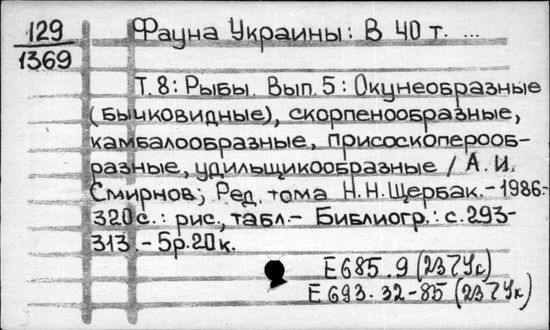 129
1369
Фауна Украины: В 40 т. ...
Т. 8: Рыбы. Вып. 5: Окунеобразные
(бычковидные), скорпенообразные,
камбалообразные, присоскоперооб-
разные, удильщикообразные / А. И.
Смирнов; Ред. тома Н.Н.Щербак.-1986.-
320с.: рис., табл.- Библиогр.: с.293-
313.-5р.20к.
Е685.9(237Ук)
Е693.32-85(237Ук)